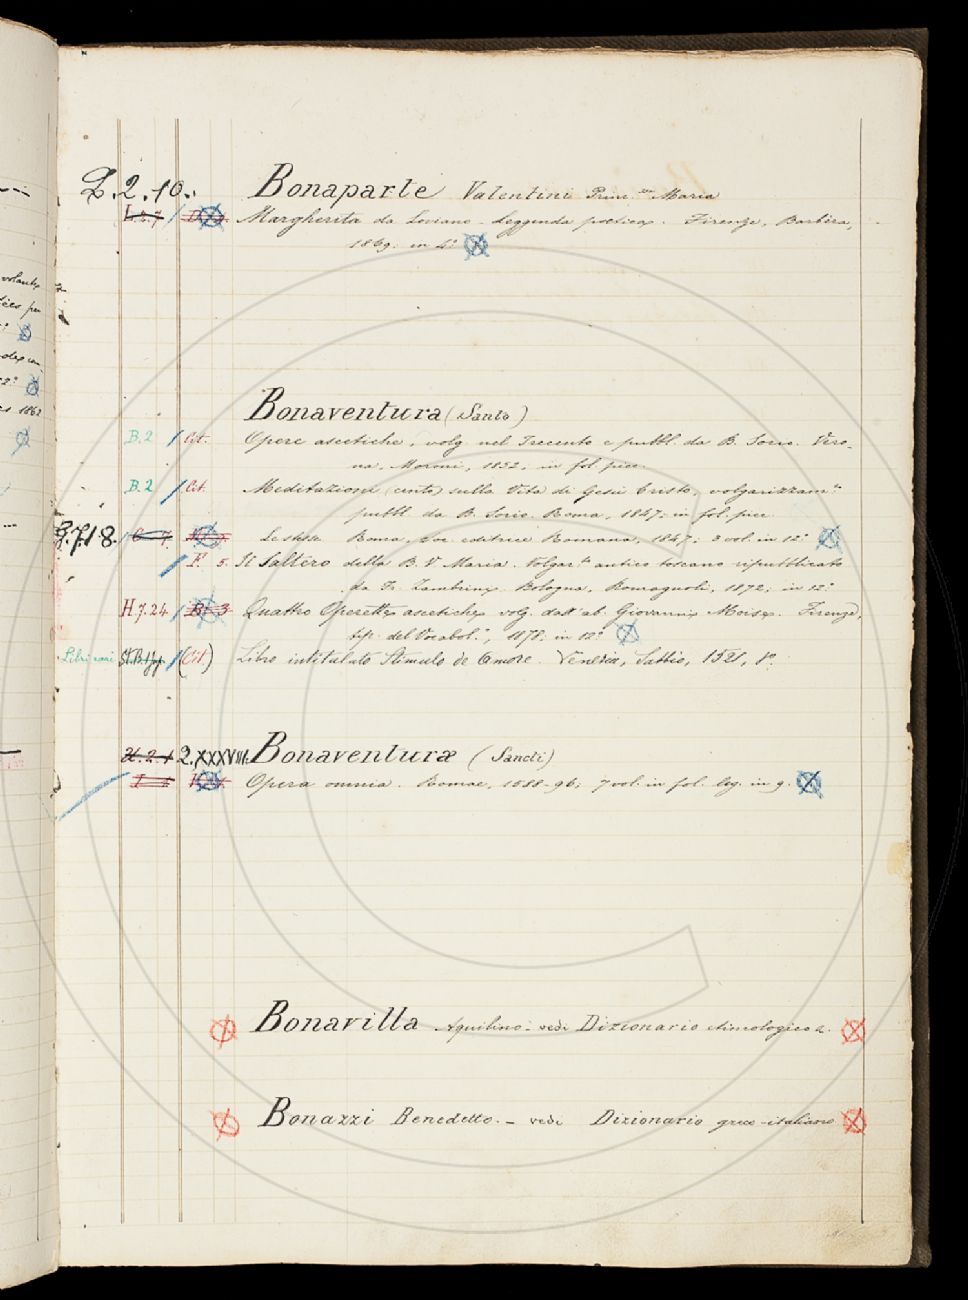 Z.2.10. Bonaparte Valentini Prin.ssa Maria
Margherita da Luviano. Leggenda poetica. Firenze, Barbèra,
1869. in 4.°
Bonaventura (Santo)
B.2 / Cit. Opere ascetiche, volg. nel Trecento e pubbl. da B. Sorio. Vero-
na, Moroni, 1852, in fol. picc.
B.2 / Cit. Meditazioni (cento) sulla Vita di Gesù Cristo, volgarizzam.to
pubbl. da B. Sorio. Roma, 1847; in fol. picc.
Le stesse. Roma, soc. editrice Romana, 1847; 2 vol. in 12.°
/ F. 5. Il Saltero della B. V. Maria. Volgar.to antico toscano ripubblicato
da Fr. Zambrini. Bologna, Romagnoli, 1872; in 12.°
H 7.24 / Quattro Operette ascetiche volg. dall'ab. Giovanni Moise. Firenze,
tip. del Vocabol.°, 1878. in 12.°
(Cit.) Libro intitulato Stimulo de Amore. Venezia, Sabbio, 1521, 8.°
2.XXXVIII. Bonaventuræ (Sancti)
Opera omnia. Romae, 1588-96; 7 vol. in fol. leg. in 9.
Bonavilla Aquilino - vedi Dizionario etimologico
Bonazzi Benedetto. - vedi Dizionario greco-italiano